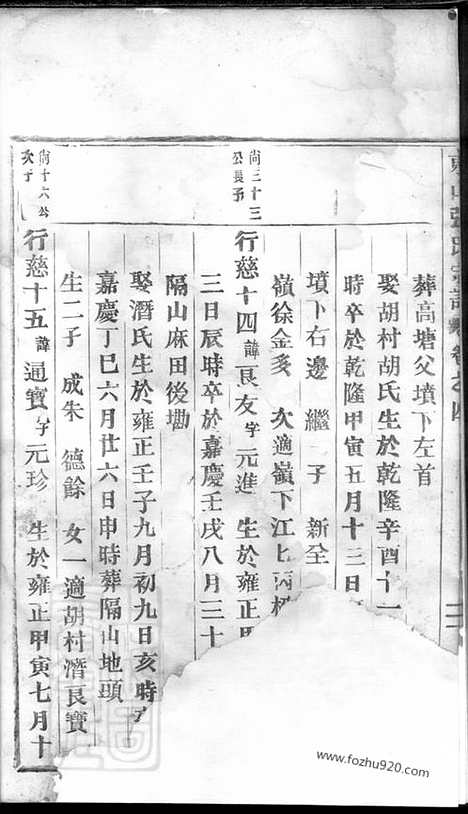 葬高塘父墳下左首
娶胡村胡氏生於乾隆辛酉十一
時卒於乾隆甲寅五月十三日
墳下右邊 繼子 新全
嶺徐金友 次適嶺下江
尚三十三公長子
行慈十四 諱良友 字元進 生於雍正
三日辰時卒於嘉慶壬戌八月三十
隔山麻田後塝
娶潛氏生於雍正壬子九月初九日亥時
嘉慶丁巳六月廿六日申時葬隔山地頭
生二子 成朱 德餘 女一適胡村潛良寶
尚十六公次子
行慈十五 諱通寶 字元珍 生於雍正甲寅七月十
www.fozhu920.com